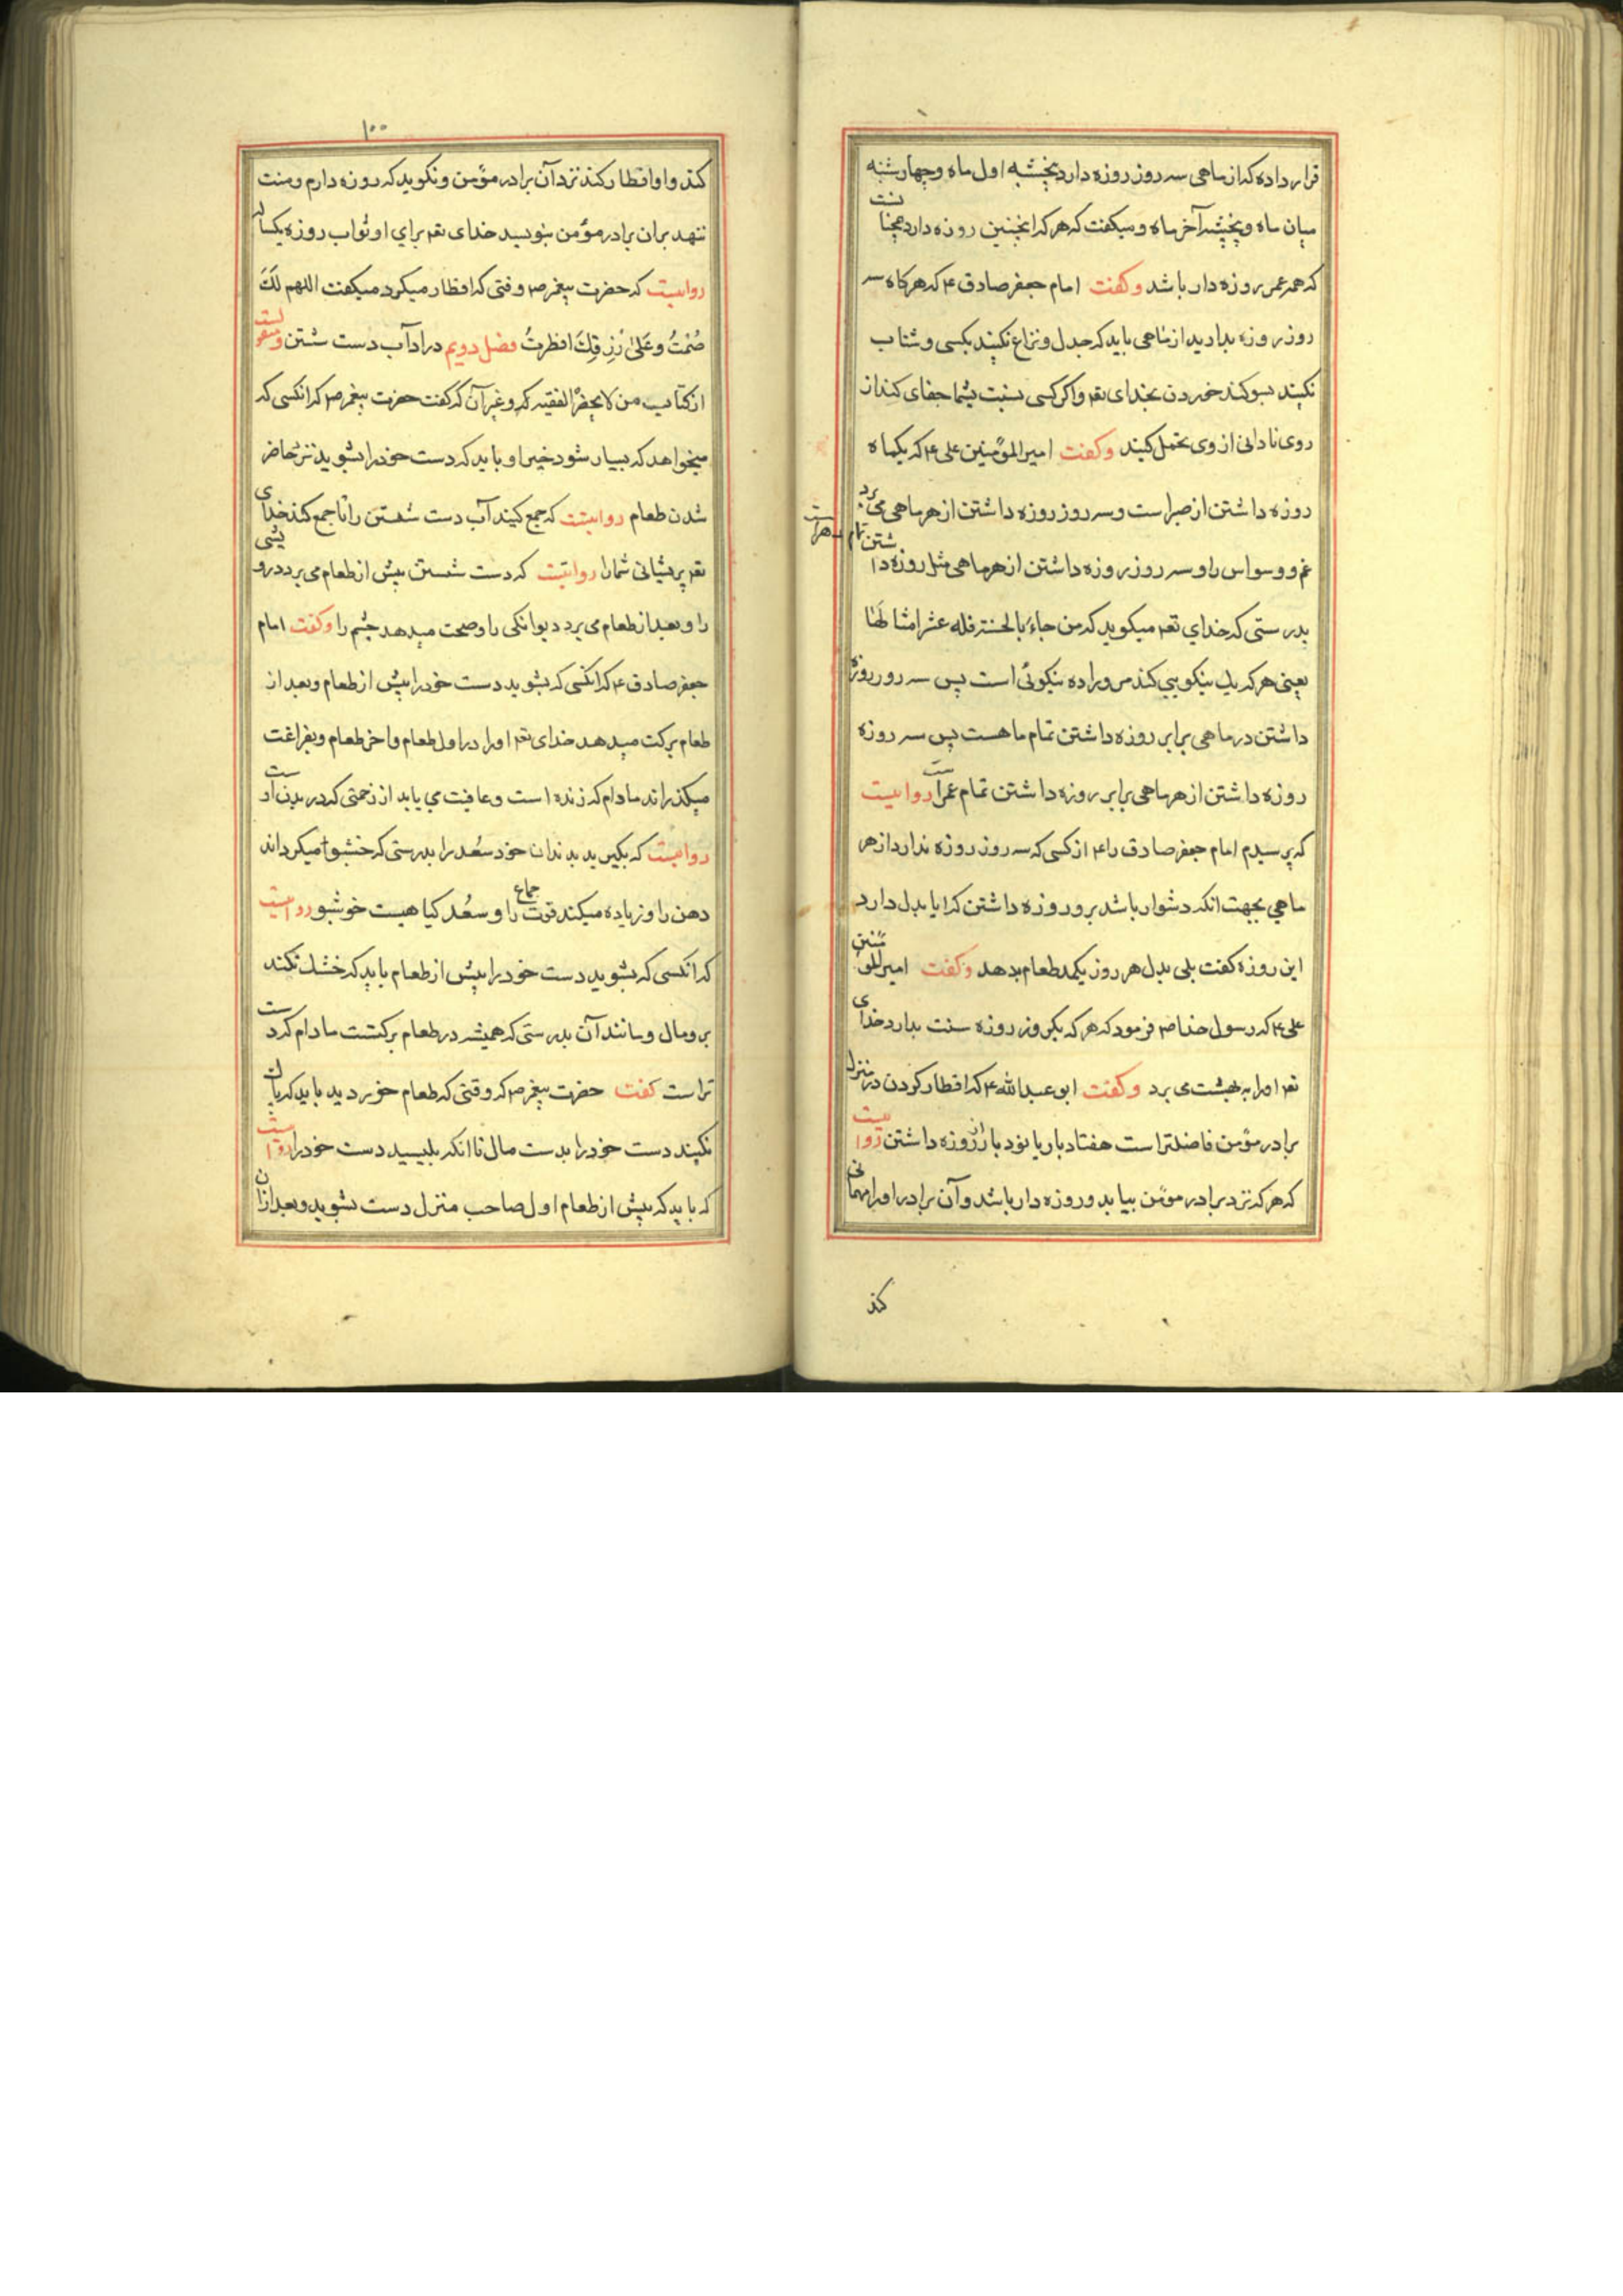 قرار داده که از ماهی سه روز روزه دارد پنجشنبه اول ماه و چهارشنبه
میان ماه و پنجشنبه آخر ماه و میکفت که هر که اینچنین روزه دارد همچنانست
که همه عمر روزه دار باشد وکفت امام جعفر صادق ع که هرکاه سه
روز روزه بدارید از ماهی باید که جدل و نزاع نکنید بکسی و شتاب
نکنید بسوکند خوردن بخدای تعم و اکر کسی نسبت بشما جفای کند از
روی نادانی از وی تحمل کنید وکفت امیر المؤمنین علی ع که یکماه
روزه داشتن از صبر است و سه روز روزه داشتن از هر ماهی می برد
غم و وسواس را و سه روز روزه داشتن از هر ماهی مثل روزه داشتن تمام
بدرستی که خدای تعم میکوید که من جاء بالحسنة فله عشر امثالها
یعنی هر که یک نیکویی کند مر ورا ده نیکوئی است پس سه روز روزه
داشتن در ماهی برابر روزه داشتن تمام ماهست پس سه روزه
روزه داشتن از هر ماهی برابر روزه داشتن تمام عمر است روایتست
که پرسیدم امام جعفر صادق را ع از کسی که سه روز روزه ندارد از هر
ماهی بجهت انکه دشوار باشد برو روزه داشتن که ایا بدل دارد
این روزه کفت بلی بدل هر روز یکمد طعام بدهد وکفت امیر المؤمنین
علی ع که رسول خدا ص فرمود که هر که یکروز روزه سنت بدارد خدای
تعم اورا به بهشت می برد وکفت ابو عبدالله ع که افطار کردن در منزل
برادر مؤمن فاضلتر است هفتاد بار یا نود بار از روزه داشتن روایتست
که هر که نزد برادر مؤمن بیاید و روزه دار باشد و آن برادر اورا مهمانی
کند
۱۰۰
کند و او افطار کند نزد آن برادر مؤمن و نکوید که روزه دارم و منت
ننهد بران برادر مؤمن بنویسد خدای تعم برای او ثواب روزه یکسال
روایتست که حضرت پیغمبر ص وقتی که افطار میکرد میکفت اللهم لَکَ
صُمْتُ وعَلیٰ رِزقِکَ افطرتُ فصل دویم در آداب دست شستن
از کتاب من لا یحضره الفقیه که و غیر آن که کفت حضرت پیغمبر ص که انکسی که
میخواهد که بسیار شود خیر او باید که دست خود را بشوید نزد حاضر
شدن طعام روایتست که جمع کنید آب دست شستن را تا جمع کند خدای
تعم پریشانی شمارا روایتست که دست شستن پیش از طعام می برد درویشی
را و بعد از طعام می برد دیوانکی را و صحت میدهد چشم را وکفت امام
جعفر صادق ع که انکسی که بشوید دست خود را پیش از طعام و بعد از
طعام برکت میدهد خدای تعم اورا در اول طعام و اخر طعام و بفراغت
میکذراند مادام که زنده است و عافیت می یابد از زحمتی که در بدن اوست
روایتست که بکیرید بدندان خود سعُد را بدرستی که خشبوا میکرداند
دهن را و زیاده میکند قوت جماع را و سعُد کیاهیست خوشبو روایتست
که انکسی که بشوید دست خود را پیش از طعام باید که خشک نکند
برومال و مانند آن بدرستی که همیشه در طعام برکتست مادام که دست
تر است کفت حضرت پیغمبر ص که وقتی که طعام خوردید باید که پاک
نکنید دست خود را بدست مال تا انکه بلیسید دست خود را روایتست
که باید که پیش از طعام اول صاحب منزل دست بشوید و بعد از ان